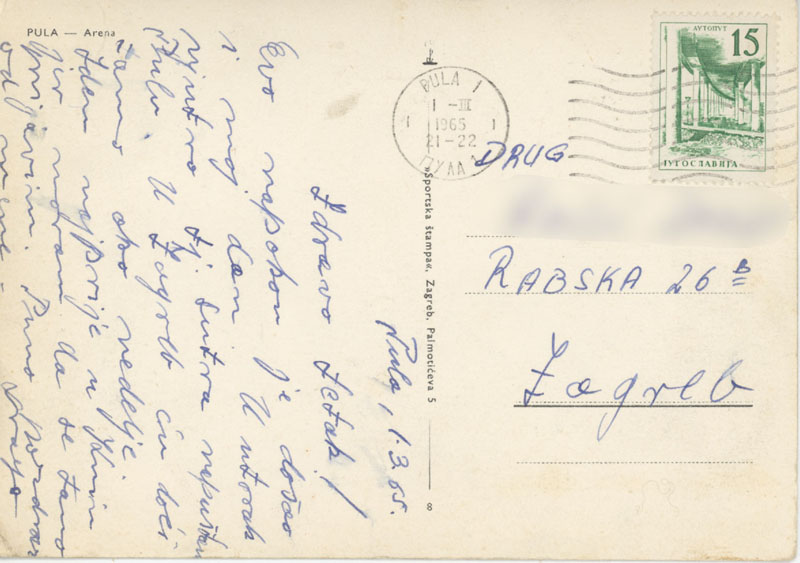 PULA — Arena
Pula, 1.3.65.
Zdravo Ježek!
Evo napokon je došao
i moj dan. U utorak
ujutro tj. sutra napuštam
Pulu. U Zagreb ću doći
tamo oko nedelje.
Idem najprije u
jer moram da se tamo
prijavim. Puno pozdrava
od mene -
"Sportska štampa", Zagreb, Palmotićeva 5
8
PULA 1
1 -III
1965
21-22
1 1
ПУЛА 1
АУТОПУТ
15
ЈУГОСЛАВИЈА
DRUG
RABSKA 26 B
Zagreb